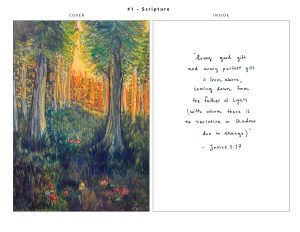 #1 – Scripture
COVER
INSIDE
"Every good gift
and every perfect gift
is from above,
coming down from
the Father of lights
(with whom there is
no variation or shadow
due to change)."
- James 1:17